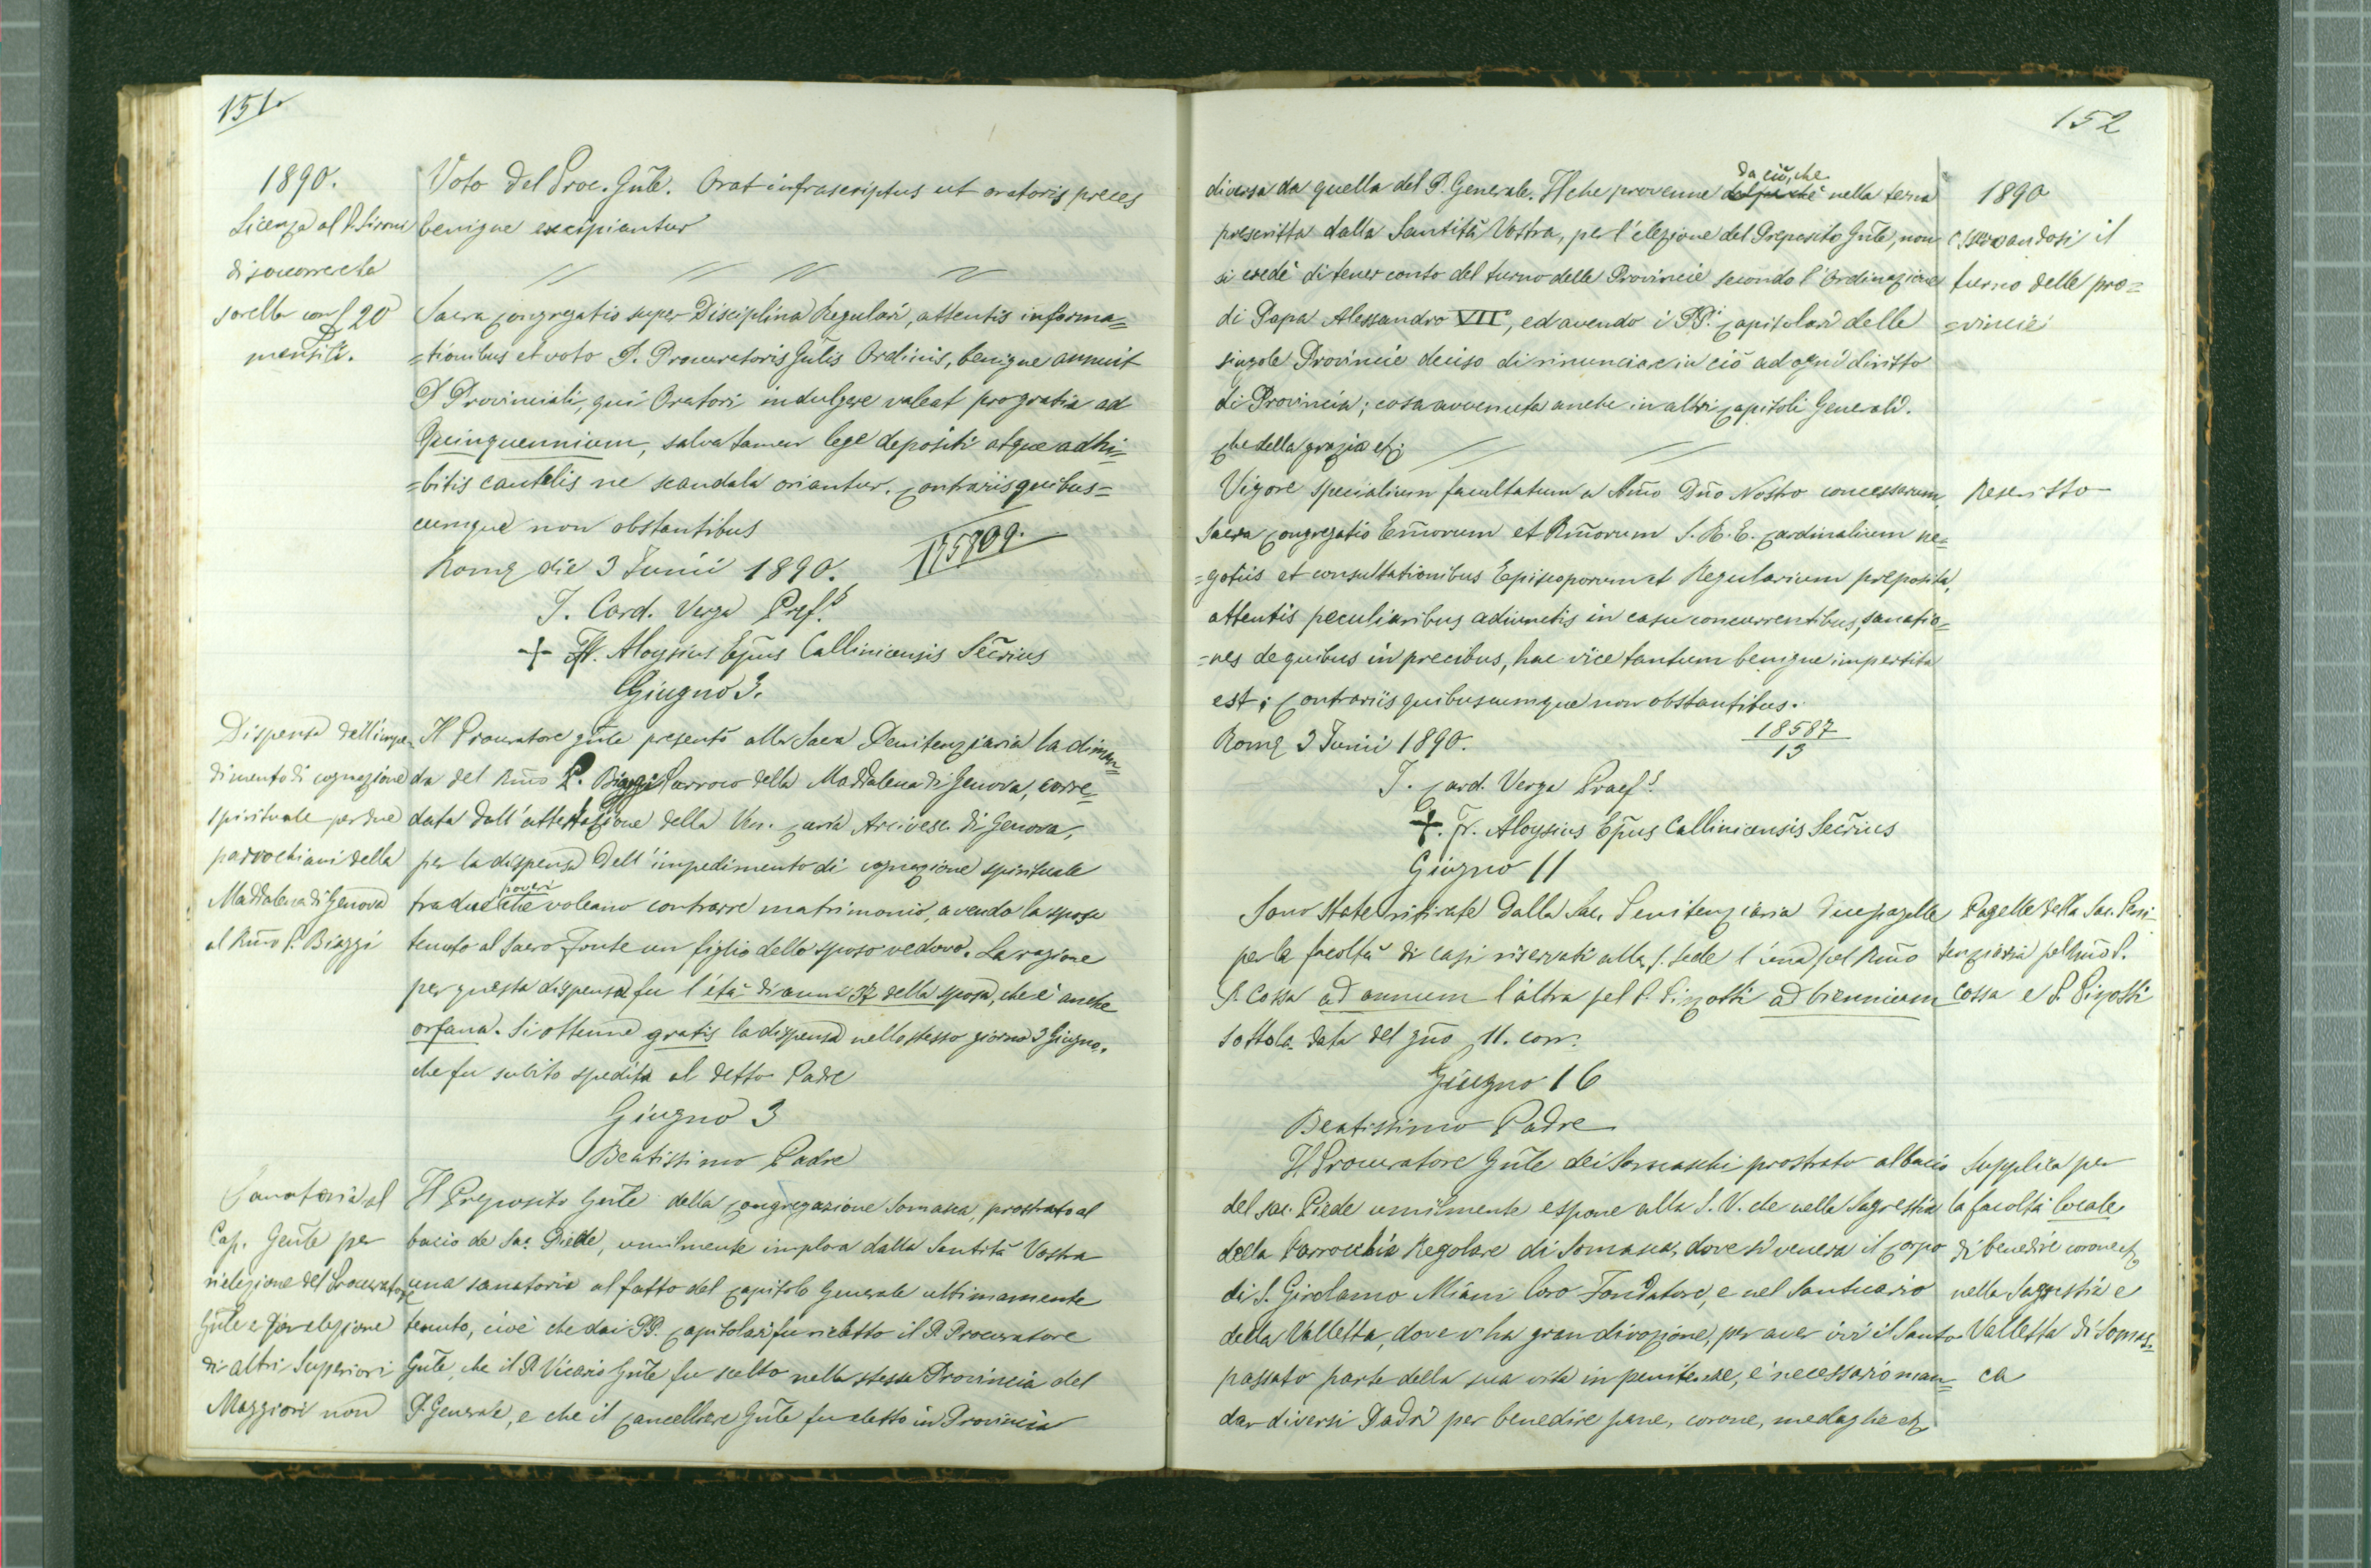 151.
1890.
Licenza al P. Sironi
di soccorrere la
sorella con £ 20
mensili.
Voto del Proc. Gñle. Orat infrascriptus ut oratoris preces
benigne excipiantur
Sacra Congregatio super Disciplina Regulari, attentis informa=
=tionibus et voto P. Procuratoris Gñlis Ordinis, benigne annuit
P. Provinciali, qui Oratori indulgere valeat pro gratia ad
Quinquennium, salva tamen lege depositi atque adhi=
=bitis cautelis ne scandala oriantur. Contrariis quibus=
cumque non obstantibus
Romę die 3 Junii 1890.
I. Card. Verga Pref.s
+ Fr. Aloysius Epũs Callinicensis Secrius
Giugno 3.
Dispensa dell'impe=
dimento di cognazione
spirituale per due
parrochiani della
Maddalena di Genova
al Rm̃o P. Biaggi
Il Procuratore gñle presentò alla Sacra Penitenziaria la diman=
da del Rm̃o P. Biaggi Parroco della Maddalena di Genova, corre=
data dall'attestazione della Ven. Curia Arcivesc. di Genova,
per la dispensa dell'impedimento di cognazione spirituale
tra due poveri che voleano contrarre matrimonio, avendo la sposa
tenuto al Sacro Fonte un figlio dello sposo vedovo. La ragione
per questa dispensa fu l'età di anni 37 della sposa, che è anche
orfana. Si ottenne gratis la dispensa nello stesso giorno 3 Giugno,
che fu subito spedita al detto Padre
Giugno 3
Beatissimo Padre
Sanatoria al
Cap. Gen̄le per
rielezione del Procuratore
Gñle e per elezione
di altri Superiori
Maggiori non
Il Preposito Gen̄le della Congregazione Somasca, prostrato al
bacio de Sac. Piede, umilmente implora dalla Santità Vostra
una sanatoria al fatto del Capitolo Generale ultimamente
tenuto, cioè che dai PP. Capitolari fu rieletto il P. Procuratore
Gñle, che il P. Vicario Gñle fu scelto nella stessa Provincia del
P. Generale, e che il Cancelliere Gñle fu eletto in Provincia
152
diversa da quella del P. Generale. Il che provenne da ciò, che nella terna
prescritta dalla Santità Vostra, per l'elezione del Preposito Gñle, non
si credè di tener conto del turno delle Provincie secondo l'Ordinazione
di Papa Alessandro VII°, ed avendo i PP.i Capitolari delle
singole Provincie deciso di rinunciare in ciò ad ogni diritto
di Provincia; cosa avvenuta anche in altri Capitoli Generali.
Che della grazia etc.
1890
osservandosi il
turno delle pro=
=vincie
Vigore specialium facultatum a Sm̃o Dño Nostro concessarum,
Sacra Congregatio Em̃orum et Rm̃orum S. R. E. Cardinalium ne=
=gotiis et consultationibus Episcoporum et Regularium preposita,
attentis peculiaribus adiunctis in casu concurrentibus, sanatio=
=nes de quibus in precibus, hac vice tantum benigne impertita
est; Contrariis quibuscumque non obstantibus.
Romę 3 Junii 1890.
18587
13
Rescritto
I. Card. Verga Praef.s
+. Fr. Aloysius Epũs Callinicensis Secrius
Giugno 11
Sono state ritirate dalla Sac. Penitenziaria due pagelle
per la facoltà di casi riservati alla S. Sede l'una pel Rm̃o
P. Cossa ad annum l'altra pel P. Pizzotti ad biennium
sotto la data del gño 11. corr.
Pagelle della Sac. Peni=
tenziaria pel Rm̃o P.
Cossa e P. Pizotti
Giugno 16
Beatissimo Padre
Il Procuratore Gñle dei Somaschi prostrato al bacio
del sac. Piede umilmente espone alla S. V. che nella Sagrestia
della Parrochia Regolare di Somasca, dove si venera il Corpo
di S. Girolamo Miani loro Fondatore, e nel Santuario
della Valletta, dove v'ha gran divozione, per aver ivi il Santo
passato parte della sua vita in penitenze, è necessario man=
dar diversi Padri per benedire pane, corone, medaglie etc.
Supplica per
la facoltà locale
di benedire corone etc.
nella Sagrestia e
Valletta di Somas=
ca